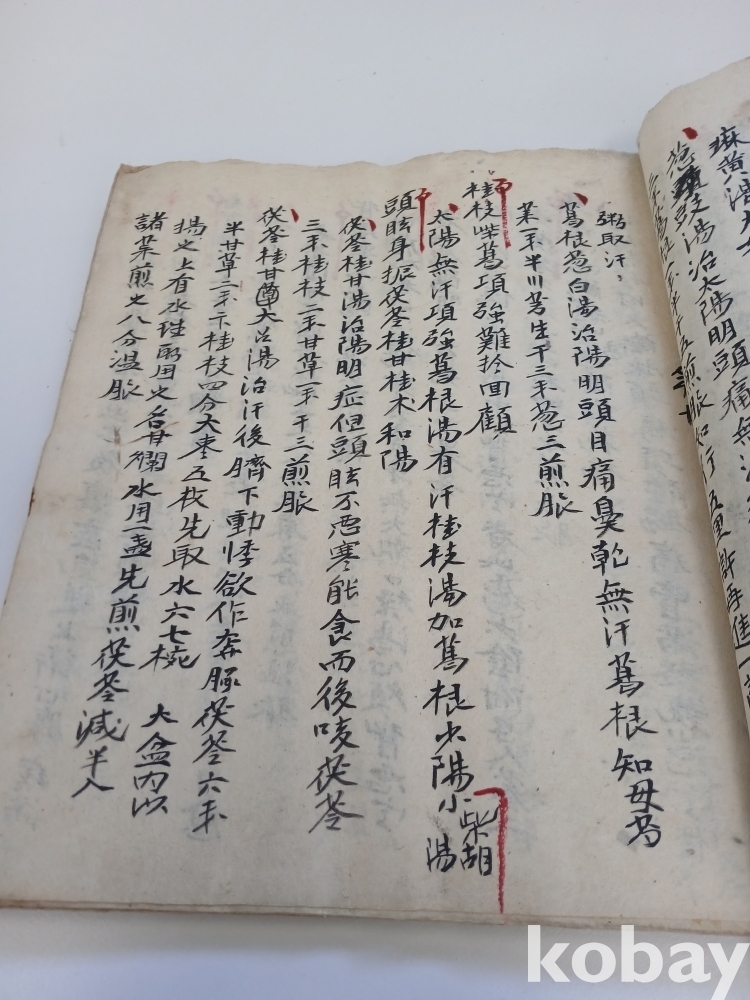 麻黃湯
葱豉湯治太陽明頭痛無汗
煎服如行五里許再進一
粥取汗、
葛根葱白湯治陽明頭目痛鼻乾無汗葛根知母芍
藥一禾半川芎生干三禾葱三煎服
桂枝柴葛項強難拎回顧
太陽無汗項強葛根湯有汗桂枝湯加葛根少陽小柴胡湯
頭眩身振茯苓桂甘桂术和陽
茯苓桂甘湯治陽明症但頭眩不惡寒能食而後咳茯苓
三禾桂枝一禾甘草一禾干三煎服
茯苓桂甘大枣湯治汗後臍下動悸欲作奔豚茯苓六禾
半甘草二禾桂枝四分大枣五枚先取水六七椀大盆内以
揚之上有水珠取用之名甘爛水用一盏先煎茯苓減半入
諸藥煎之八分温服
kobay